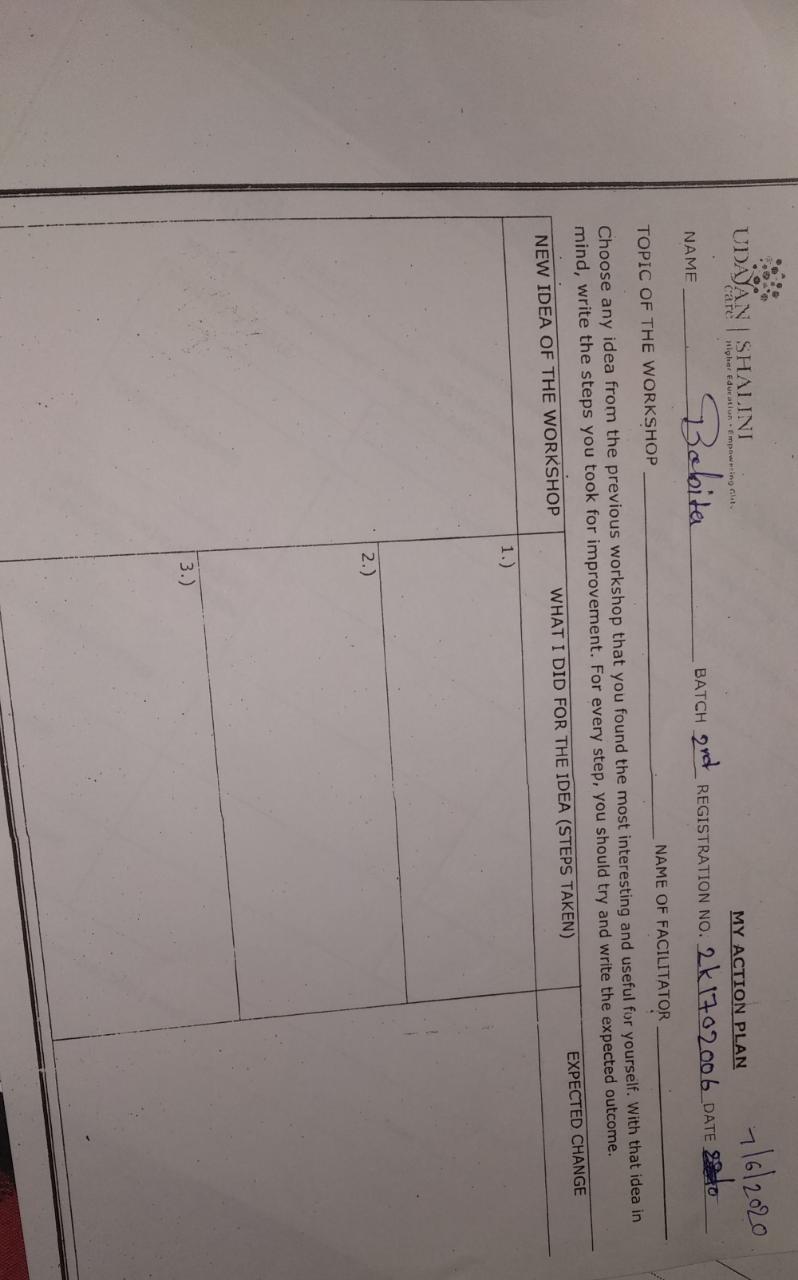 UDAYAN | SHALINI
care | Higher Education - Empowering Girls
MY ACTION PLAN
7/6/2020
NAME Babita BATCH 2nd REGISTRATION NO. 2k1702006 DATE
TOPIC OF THE WORKSHOP NAME OF FACILITATOR
Choose any idea from the previous workshop that you found the most interesting and useful for yourself. With that idea in
mind, write the steps you took for improvement. For every step, you should try and write the expected outcome.
NEW IDEA OF THE WORKSHOP WHAT I DID FOR THE IDEA (STEPS TAKEN) EXPECTED CHANGE
1.)
2.)
3.)